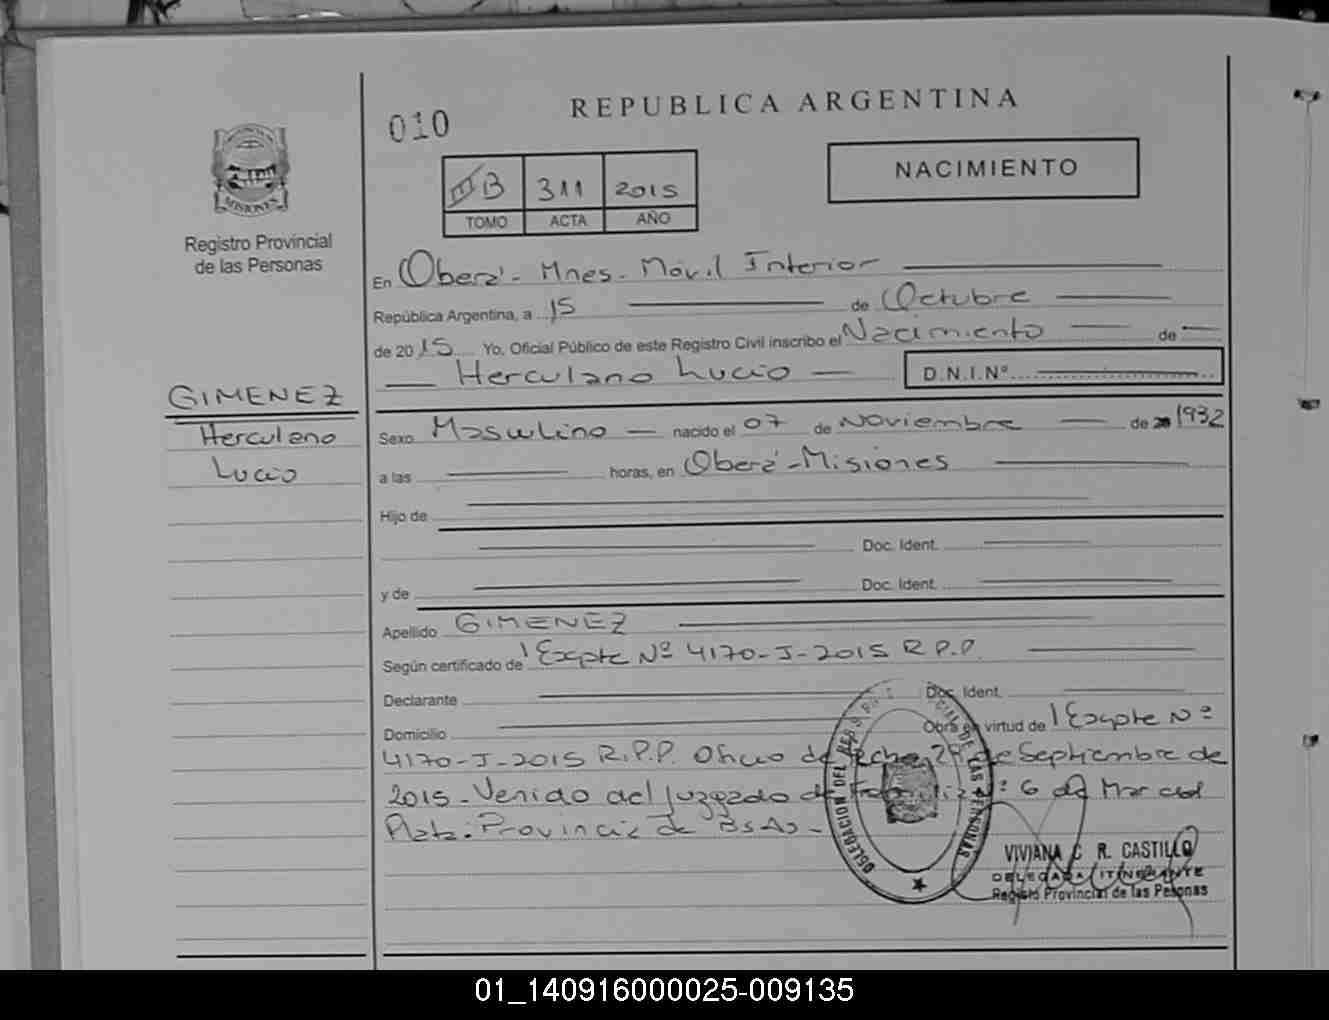 REPUBLICA ARGENTINA
010
NACIMIENTO
III B 311 2015
TOMO ACTA AÑO
MISIONES
Registro Provincial
de las Personas
En Oberá - Mnes - Móvil Interior
República Argentina, a 15 de Octubre
de 2015 Yo, Oficial Público de este Registro Civil inscribo el Nacimiento de
Herculano Lucio D.N.I.Nº
GIMENEZ
Herculano
Lucio
Sexo Masculino nacido el 07 de Noviembre de 1932
a las horas, en Oberá - Misiones
Hijo de
Doc. Ident.
y de Doc. Ident.
Apellido GIMENEZ
Según certificado de Expte Nº 4170-J-2015 R.P.P.
Declarante Doc. Ident.
Domicilio Obra en virtud de Expte Nº
4170-J-2015 R.P.P. Oficio de fecha de Septiembre de
2015 - Venido del Juzgado de Familia Nº 6 de Mar del
Plata: Provincia de Bs As -
DELEGACION DEL DE LAS PERSONAS
VIVIANA C. R. CASTILLO
DELEGADA ITINERANTE
Registro Provincial de las Personas
01_140916000025-009135